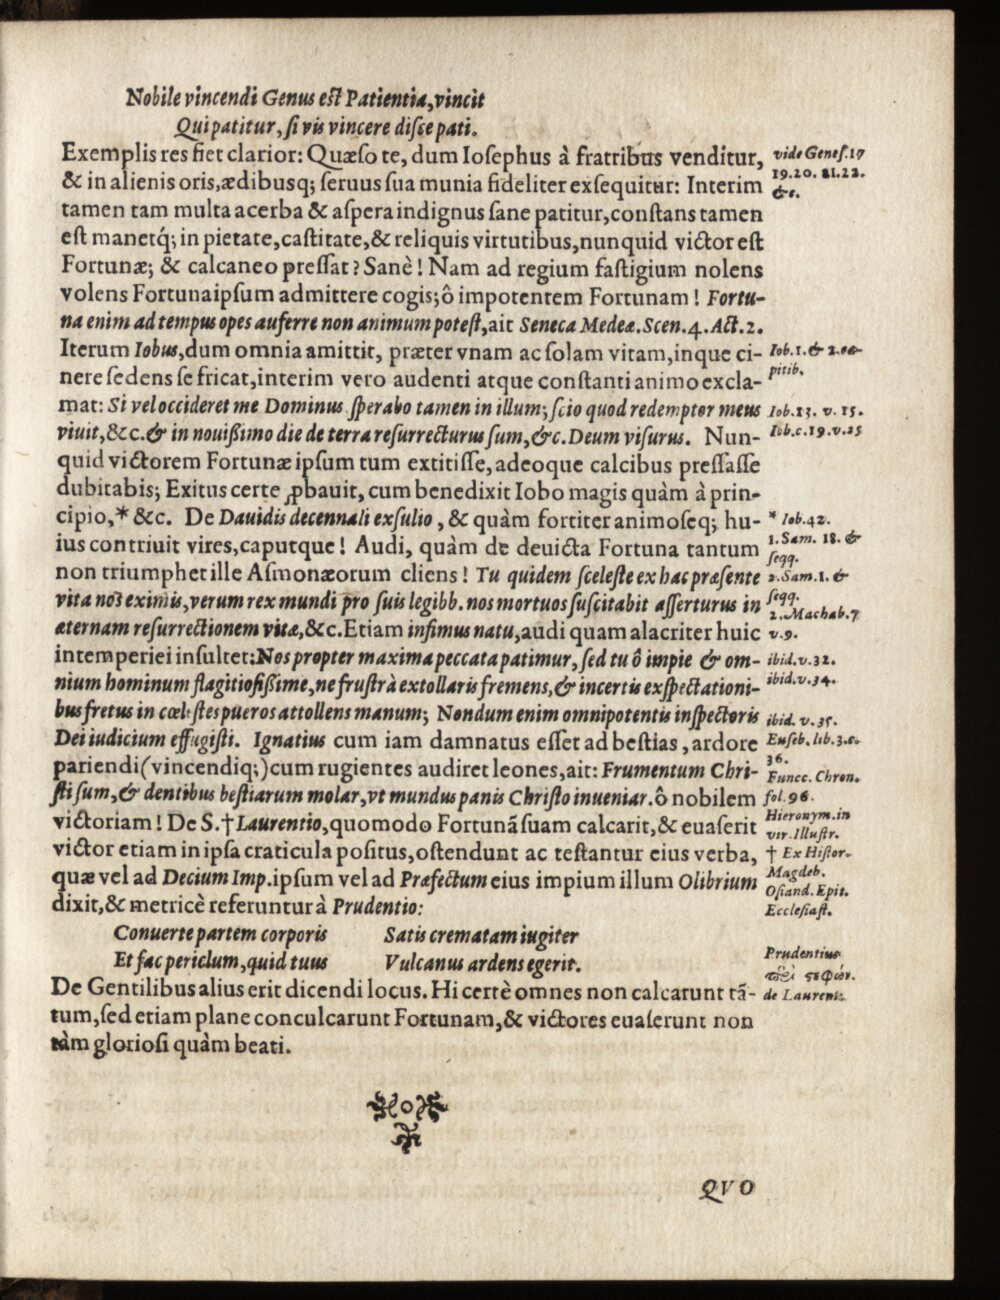 Nobile vincendi Genus est Patientia, vincit
Qui patitur, si vis vincere disce pati.
Exemplis res fiet clarior: Quæso te, dum Iosephus à fratribus venditur,
& in alienis oris, ædibusq; seruus sua munia fideliter exsequitur: Interim
tamen tam multa acerba & aspera indignus sane patitur, constans tamen
est manetq́; in pietate, castitate, & reliquis virtutibus, nunquid victor est
Fortunæ; & calcaneo pressat? Sanè! Nam ad regium fastigium nolens
volens Fortuna ipsum admittere cogis; ô impotentem Fortunam! Fortu-
na enim ad tempus opes auferre non animum potest, ait Seneca Medeæ. Scen. 4. Act. 2.
Iterum Iobus, dum omnia amittit, præter vnam ac solam vitam, inque ci-
nere sedens se fricat, interim vero audenti atque constanti animo excla-
mat: Si vel occideret me Dominus sperabo tamen in illum; scio quod redemptor meus
viuit, &c. & in nouißimo die de terra resurrecturus sum, &c. Deum visurus. Nun-
quid victorem Fortunæ ipsum tum extitisse, adeoque calcibus pressasse
dubitabis; Exitus certe ꝓbauit, cum benedixit Iobo magis quàm à prin-
cipio,* &c. De Dauidis decennali exsulio, & quàm fortiter animoseq; hu-
ius contriuit vires, caputque! Audi, quàm de deuicta Fortuna tantum
non triumphet ille Asmonæorum cliens! Tu quidem sceleste ex hac præsente
vita nos eximis, verum rex mundi pro suis legibb. nos mortuos suscitabit asserturus in
æternam resurrectionem vitæ, &c. Etiam infimus natu, audi quam alacriter huic
intemperiei insultet: Nos propter maxima peccata patimur, sed tu ô impie & om-
nium hominum flagitiosißime, ne frustrà extollaris fremens, & incertis exspectationi-
bus fretus in cœlestes pueros attollens manum; Nondum enim omnipotentis inspectoris
Dei iudicium effugisti. Ignatius cum iam damnatus esset ad bestias, ardore
pariendi (vincendiq;) cum rugientes audiret leones, ait: Frumentum Chri-
sti sum, & dentibus bestiarum molar, vt mundus panis Christo inueniar. ô nobilem
victoriam! De S. † Laurentio, quomodo Fortunã suam calcarit, & euaserit
victor etiam in ipsa craticula positus, ostendunt ac testantur eius verba,
quæ vel ad Decium Imp. ipsum vel ad Præfectum eius impium illum Olibrium
dixit, & metricè referuntur à Prudentio:
Conuerte partem corporis Satis crematam iugiter
Et fac periclum, quid tuus Vulcanus ardens egerit.
De Gentilibus alius erit dicendi locus. Hi certè omnes non calcarunt tã-
tum, sed etiam plane conculcarunt Fortunam, & victores euaserunt non
tàm gloriosi quàm beati.
QVO
vide Genes. 17
19. 20. 21. 22.
&c.
Iob. 1. & 2. ca-
pitib.
Iob. 13. v. 15.
Iob. c. 19. v. 25
* Iob. 42.
1. Sam. 18. &
seqq.
2. Sam. 1. &
seqq.
2. Machab. 7
v. 9.
ibid. v. 32.
ibid. v. 34.
ibid. v. 35.
Euseb. lib. 3. c.
36.
Funcc. Chron.
fol. 96.
Hieronym. in
vir. Illustr.
† Ex Histor.
Magdeb.
Osiand. Epit.
Ecclesiast.
Prudentius
de Laurent.